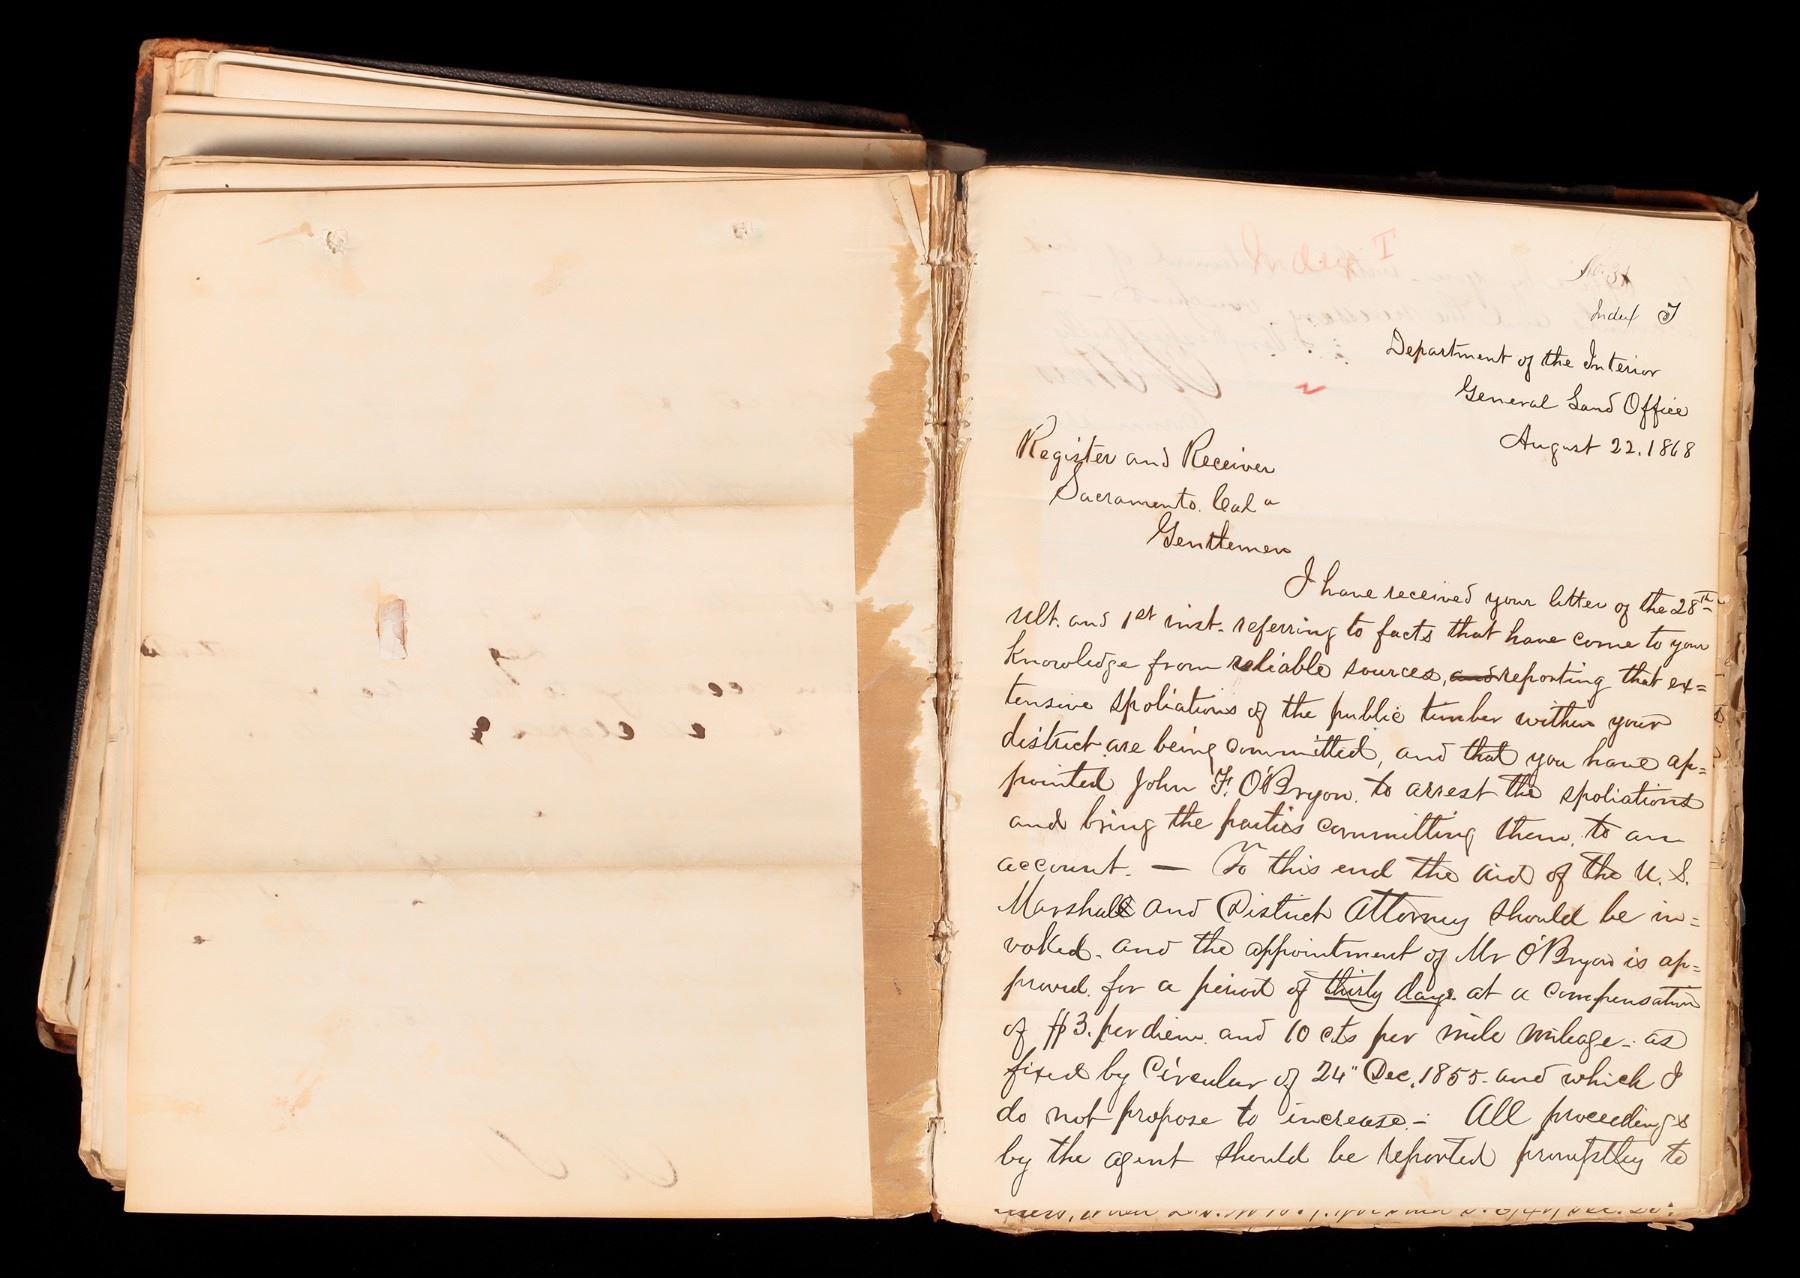 Index I
No. 31
Index I
Department of the Interior
General Land Office
August 22. 1868
Register and Receiver
Sacramento. Cala
Gentlemen
I have received your letter of the 28th
ult. and 1st inst. referring to facts that have come to your
knowledge from reliable sources, and reporting that ex=
tensive spoliations of the public timber within your
district are being committed, and that you have ap=
pointed John F. O'Bryon. to arrest the spoliations
and bring the parties committing them, to an
account. — To this end the aid of the U. S.
Marshall and District Attorney should be in=
voked. and the appointment of Mr O'Bryon is ap=
proved. for a period of thirty days. at a compensation
of $3. per diem. and 10 cts per mile mileage. as
fixed by Circular of 24" Dec. 1855. and which I
do not propose to increase. All proceedings
by the agent should be reported promptley to